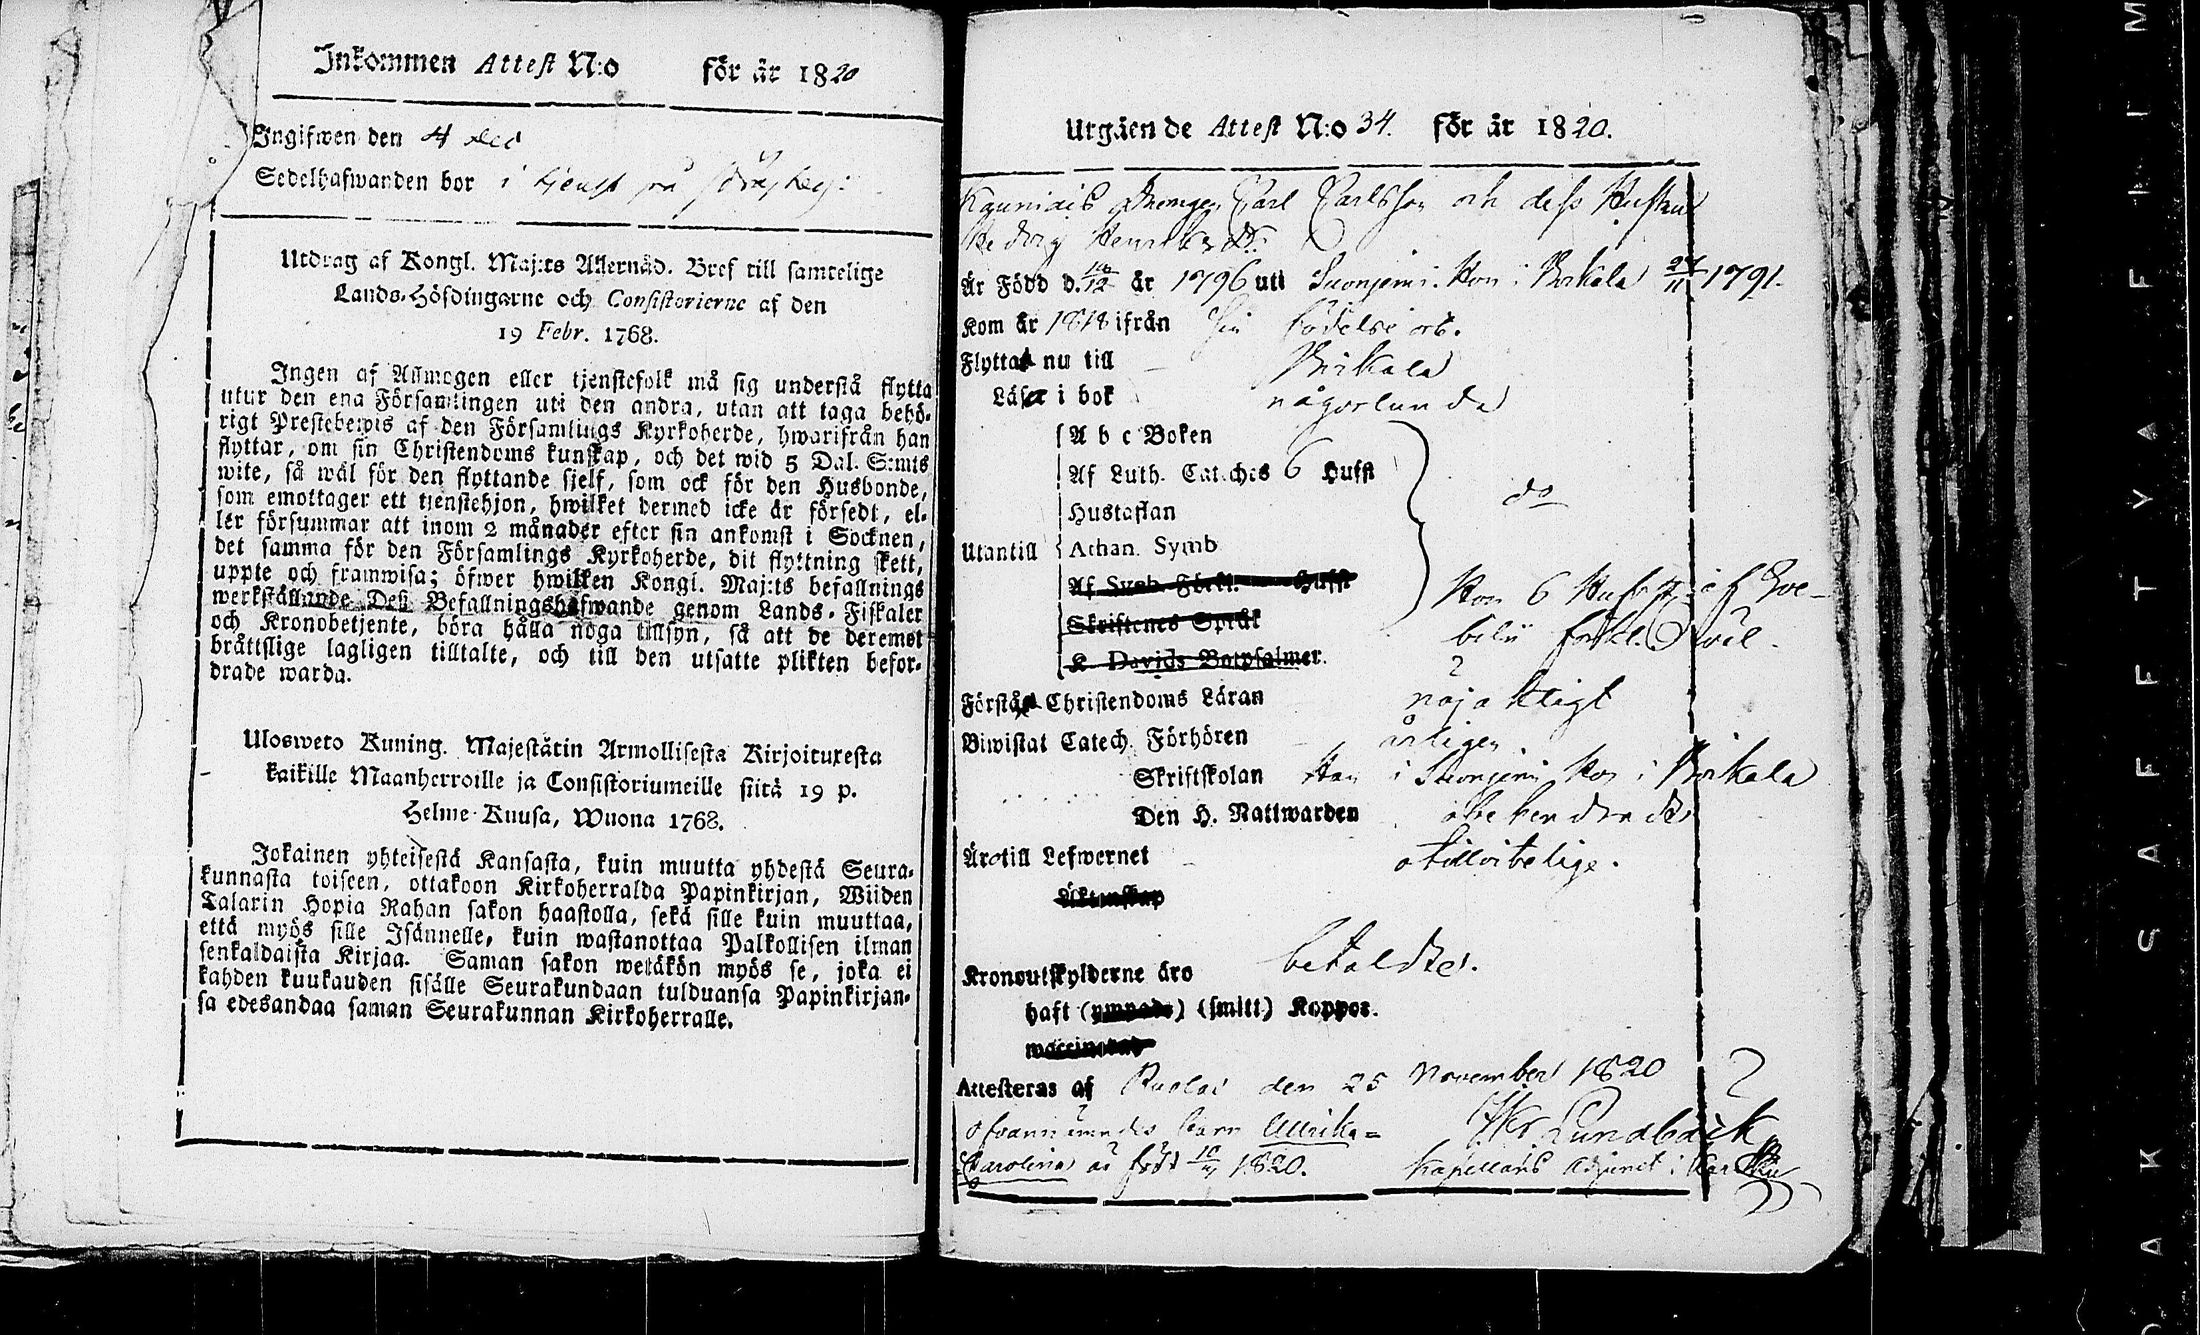 Inkommen Attest N:o för år 1820
Ingifwen den 4 Dec
Sedelhafwanden bor i tjenst på
Utdrag af Kongl. Maj:ts Allernåd. Bref till samtelige
Lands-Höfdingarne och Consistorierne af den
19 Febr. 1768.
Ingen af Allmogen eller tjenstefolk må sig understå flytta
utur den ena Församlingen uti den andra, utan att taga behö-
rigt Prestebewis af den Församlings Kyrkoherde, hwarifrån han
flyttar, om sin Christendoms kunskap, och det wid 5 Dal. S:mts
wite, så wäl för den flyttande sjelf, som ock för den Husbonde,
som emottager ett tjenstehjon, hwilket dermed icke är försedt, el-
ler försummar att inom 2 månader efter sin ankomst i Socknen,
det samma för den Församlings Kyrkoherde, dit flyttning skett,
uppte och framwisa; öfwer hwilken Kongl. Maj:ts befallnings
werkställande Deß Befallningshafwande genom Lands-Fiskaler
och Kronobetjente, böra hålla noga tillsyn, så att de deremot
bråttslige lagligen tilltalte, och till den utsatte plikten befor-
drade warda.
Ulosweto Kuning. Majestätin Armollisesta Kirjoituxesta
kaikille Maanherroille ja Consistoriumeille siitä 19 p.
Helme-Kuusa, Wuona 1768.
Jokainen yhteisestä Kansasta, kuin muutta yhdestä Seura-
kunnasta toiseen, ottakoon Kirkoherralda Papinkirjan, Wiiden
Talarin Hopia Rahan sakon haastolla, sekä sille kuin muuttaa,
että myös sille Isännelle, kuin wastanottaa Palkollisen ilman
senkaldaista Kirjaa. Saman sakon wetäkön myös se, joka ei
kahden kuukauden sisälle Seurakundaan tulduansa Papinkirjan-
sa edesandaa saman Seurakunnan Kirkoherralle.
Utgående Attest N:o 34. för år 1820.
Drengen Carl Carlsson och dess Hustru
Hedvig Henriksdr
Är Född d. 10/12 år 1796 uti Suonjemi. Hon i Birkala 27/11 1791.
Kom år 1818 ifrån sin födelse ort.
Flyttar nu till Birkala
Läser i bok någorlunda
A b c Boken
Af Luth. Catiches 6 Hufst
Hustaflan do
Utantill Athan. Symb
Af Symb. Förkl. Hufst
Hon 6 Hufst. af Sve-
Skriftenes Språk
bilii förkl. väl.
K. Davids Botpsalmer.
Förstår Christendoms Läran nöjaktigt
Biwistat Catech. Förhören årligen
Skriftskolan Han i Suonjemi Hon i Birkala
Den H. Nattwarden obehindrade
Äro till Lefwernet otillvitelige.
Äktenskap
Kronoutskylderne äro betaldte.
haft (ympade) (smitt) Koppor.
waccinerad
Attesteras af den 25 November 1820
ofvannämndes barn Ulrika
Lundbäck
Carolina är född 1820.
Kapellans Adjunct i
SAFETY A FILM
SAK